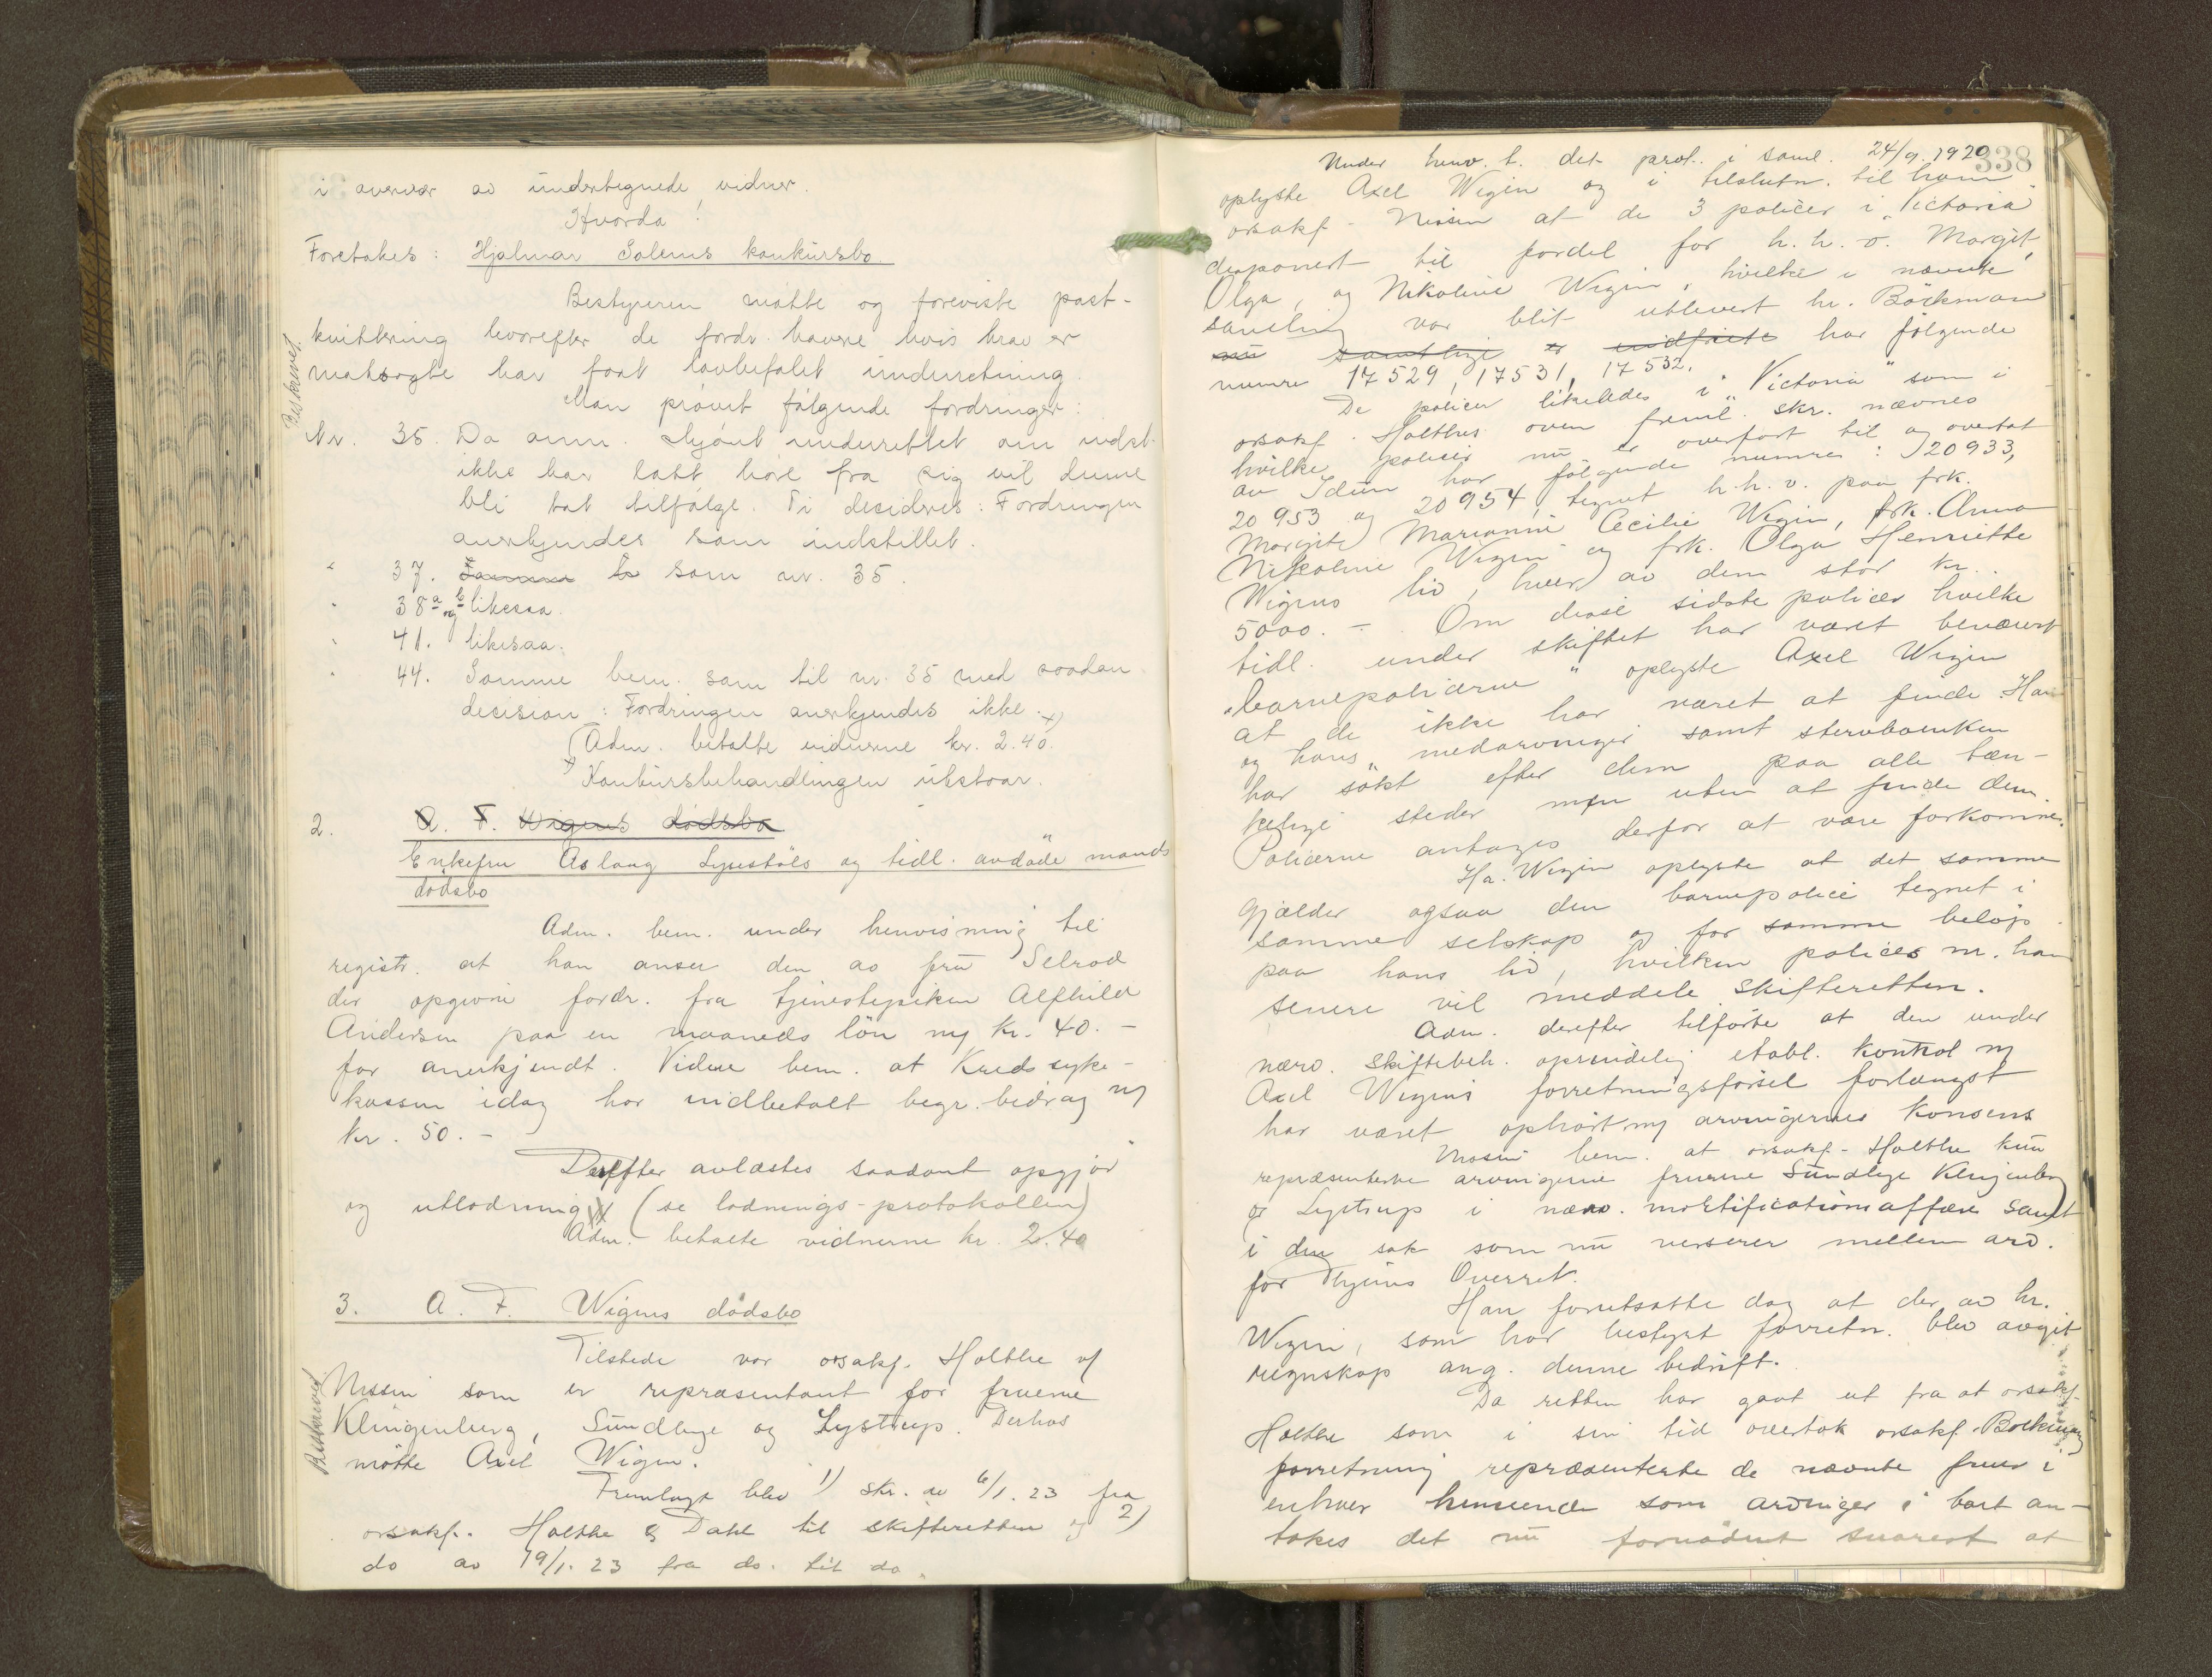 i overvær av undertegnede vidner.
Hvorda!
Foretakes: Hjalmar Salems konkursbo
Bestyreren møtte og foreviste post-
kvittering hvorefter de fordr. havere hvis krav er
motsagte har faat lovbefalet underretning.
Beskrevet.
Man prøvet følgende fordringer:
Nr. 35. Da anm. skjønt underrettet om indst.
ikke har latt høre fra sig vil denne
bli tat tilfølge. Ti decideres: Fordringen
anerkjendes som indstillet.
" 37. Samme som nr. 35.
" 38a og b likesaa.
" 41. likesaa.
" 44. Samme bem. som til nr. 35 med saadan
decision: Fordringen anerkjendes ikke. x)
(Adm. betalte vidnerne kr. 2.40.
x) Konkursbehandlingen utstaar.
2. A. F. Wigens dødsbo
Enkefru Aslaug Lysestøls og tidl. avdøde mands
dødsbo
Adm. bem. under henvisning til
registr. at han anser den av fru Selrod
der opgivne fordr. fra tjenestepiken Alfhild
Andersen paa en maaneds løn m/ kr. 40.-
for anerkjendt. Videre bem. at Kredssyke-
kassen idag har indbetalt begr. bidrag m/
kr. 50.-
Derefter avlæstes saadant opgjør
og utlodning (se lodnings-protokollen)
Adm. betalte vidnerne kr. 2.40
3. A. F. Wigens dødsbo
Tilstede var orsakf. Holthe v/
Nissen som er repræsentant for fruerne
Klingenberg, Sundlye og Lystrup. Derhos
møtte Axel Wigen.
Beskrevet
Fremlagt blev 1) skr. av 6/1. 23 fra
orsakf. Holthe & Dahl til skifteretten og 2)
do av 19/1. 23 fra do. til do.
338
Under henv. t. det prot. i saml. 24/9. 1920
oplyste Axel Wigen og i tilslutn. til ham
orsakf. Nissen at de 3 policer i "Victoria"
deponert til fordel for h.h.v. Margit,
Olga, og Nikoline Wigen, hvilke i nævnte
samling var blit utlevert hr. Böckman
nu samtlige er indfriet har følgende
numre 17529, 17531, 17532.
De policer likeledes i "Victoria" som i
orsakf. Holthes oven freml. skr. nævnes
hvilke policer nu er overført til og overtat
av Idun har følgende numre: 20933,
20953 og 20954, tegnet h.h.v. paa frk.
Margite Marianne Cecilie Wigen, frk. Anna
Nikoline Wigen og frk. Olga Henriette
Wigens liv, hver av dem stor kr.
5000.- Om disse sidste policer hvilke
tidl. under skiftet har været benævnt
"barnepolicerne" oplyste Axel Wigen
at de ikke har været at finde. Han
og hans medarvinger samt stervboenken
har søkt efter dem paa alle tæn-
kelige steder men uten at finde dem.
Policerne antages derfor at være forkomne.
Hr. Wigen oplyste at det samme
gjælder ogsaa den barnepolice tegnet i
samme selskap og for samme beløp
paa hans liv, hvilken polices nr. han
senere vil meddele skifteretten.
Adm. derefter tilførte at den under
nærv. skiftebeh. oprindelig etabl. kontrol m/
Axel Wigens forretningsførsel forlængst
har været ophørt m/ arvingernes konsens
Nissen bem. at orsakf. Holthe kun
repræsenterte arvingerne fruerne Sundlye Klingenberg
og Lystrup i nærv. mortificationsaffære samt
i den sak som nu verserer mellem arv.
for Thjems Overret.
Han forutsatte dog at der av hr.
Wigen, som har bestyrt forretn. blev avgit
regnskap ang. denne bedrift.
Da retten har gaat ut fra at orsakf.
Holthe som i sin tid overtok orsakf. Böckmans
forretning repræsenterte de nævnte fruer i
enhver henseende som arvinger i boet an-
takes det nu fornødent snarest at